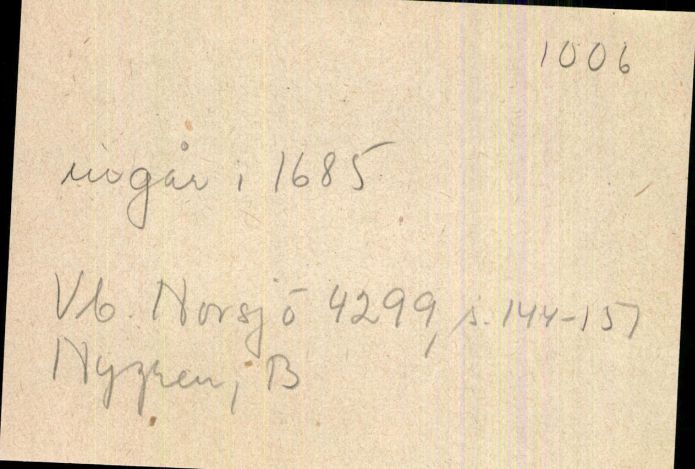 1006
ingår i 1685
Vb. Norsjö 4299, s. 144-157
Nygren, B